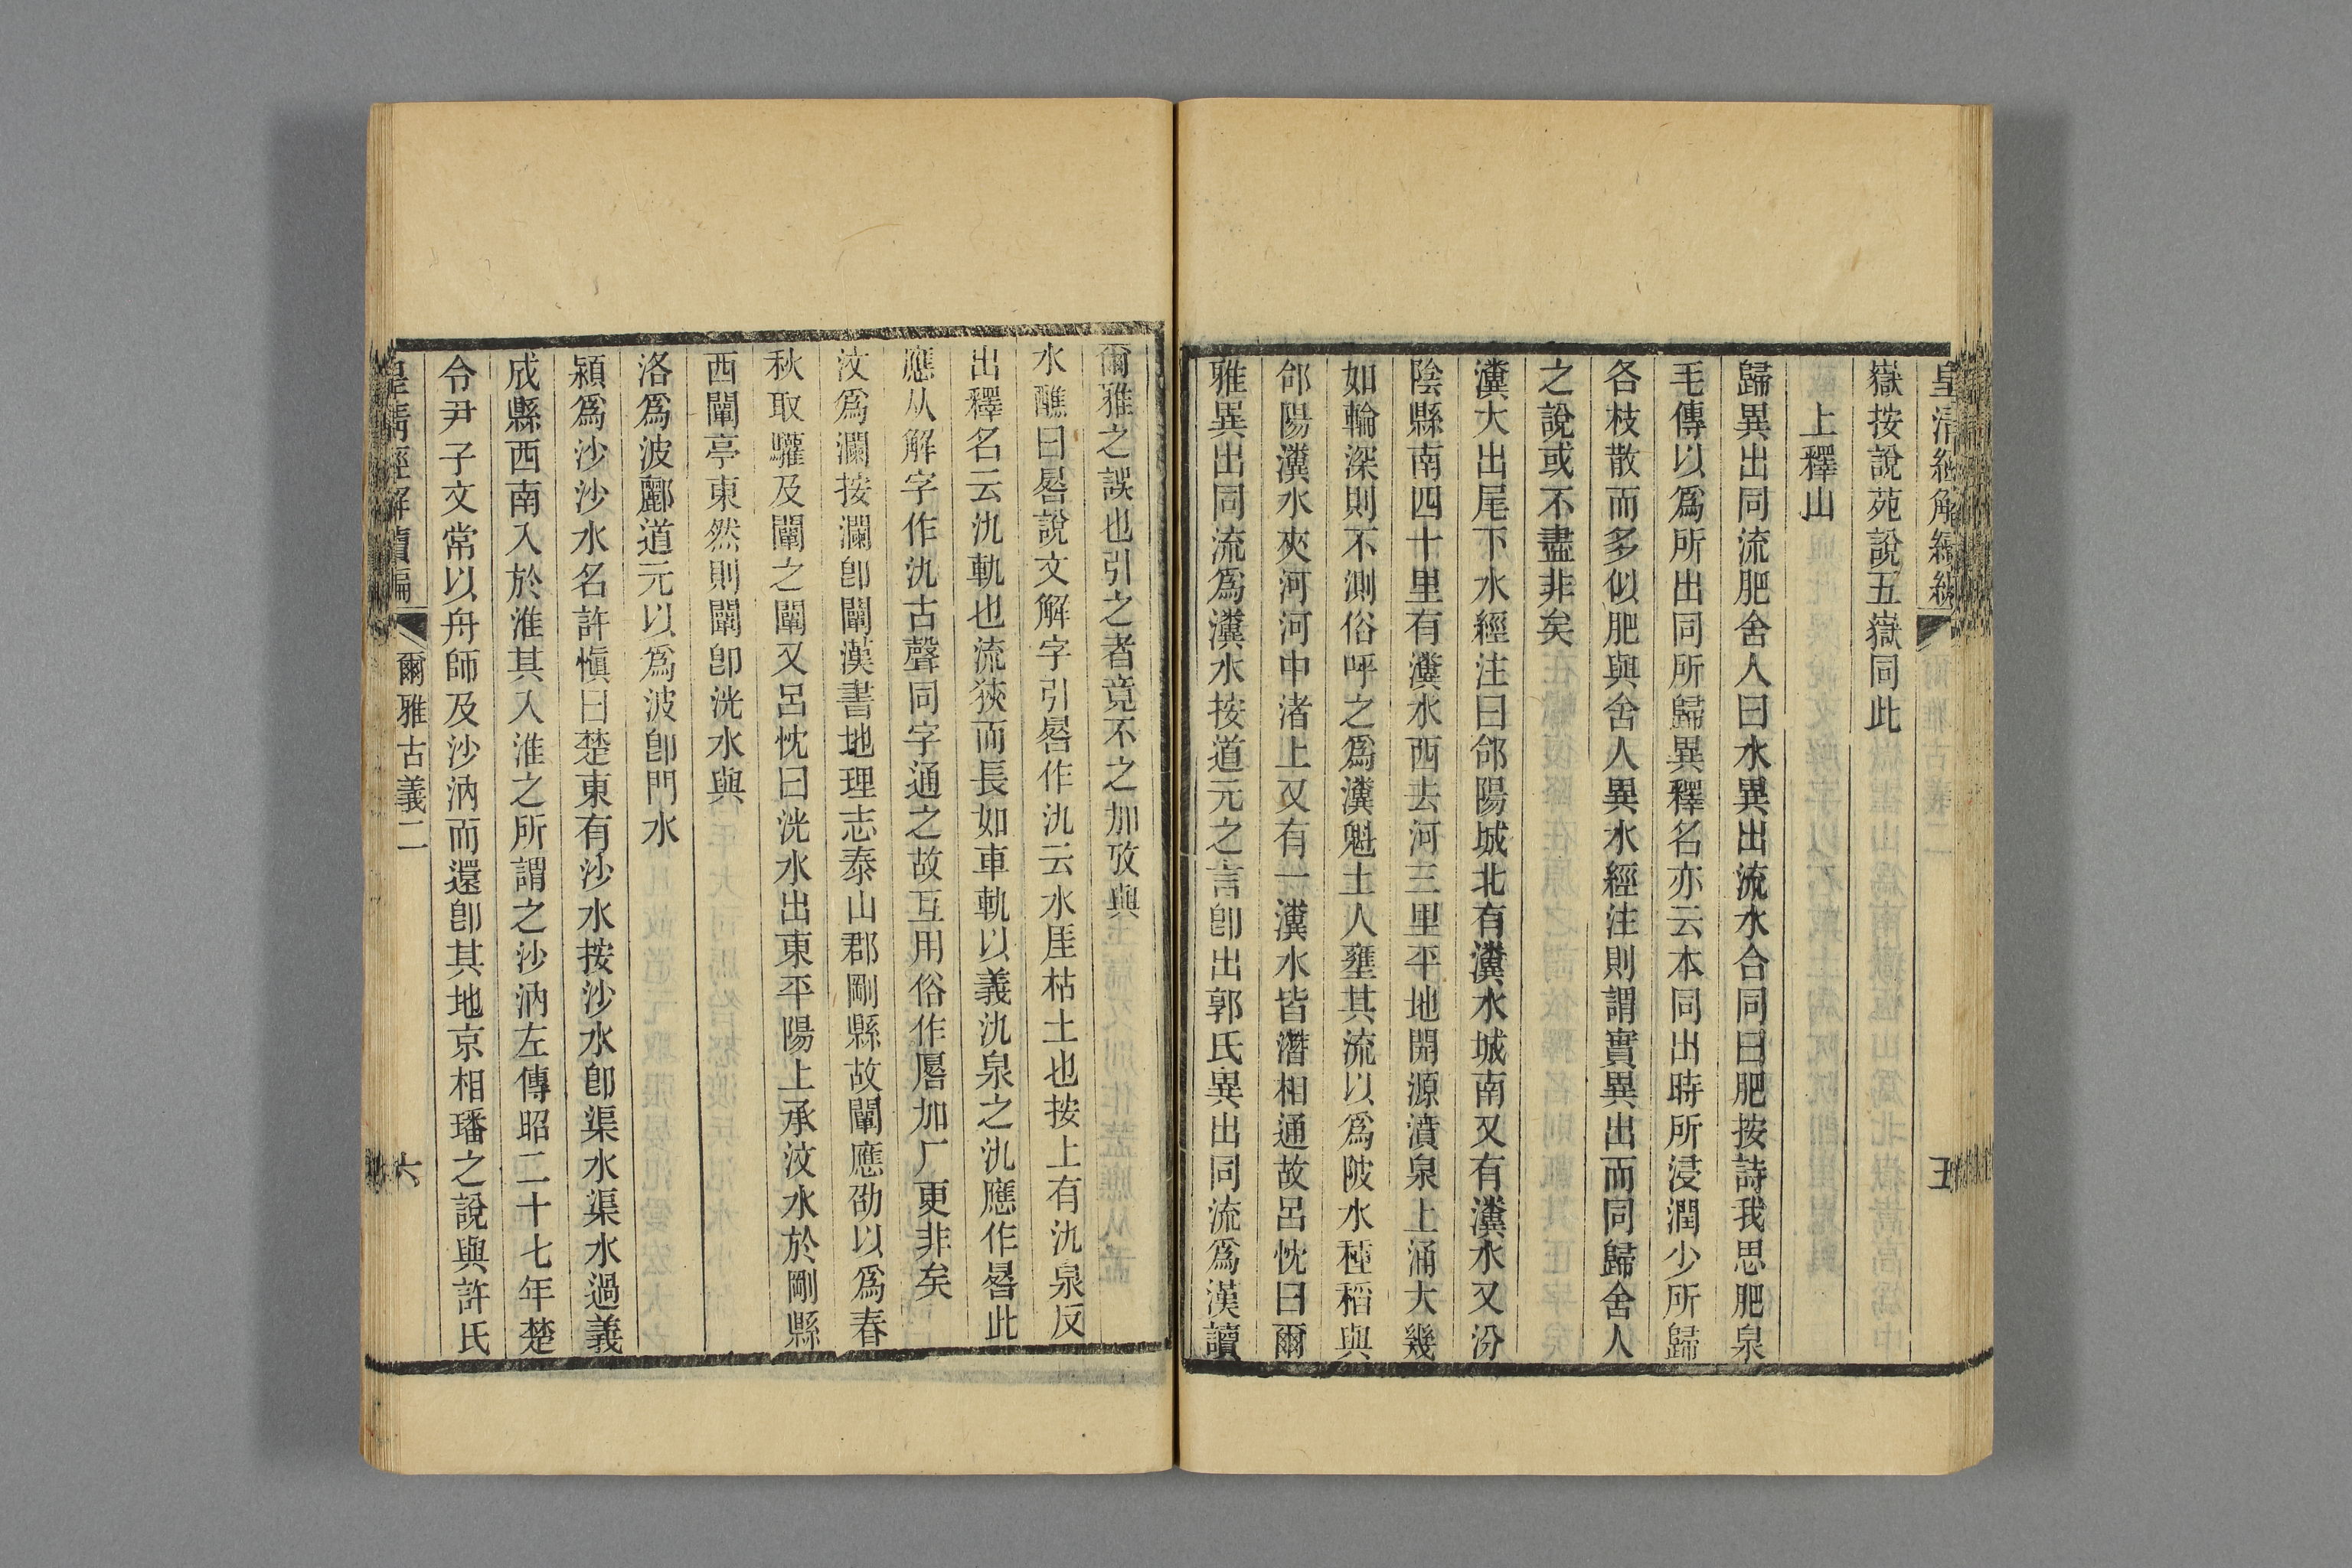 皇清經解續編
五
嶽按說苑說五嶽同此
上釋山
歸異出同流肥舍人曰水異出流水合同曰肥按詩我思肥泉
毛傳以爲所出同所歸異釋名亦云本同出時所浸潤少所歸
各枝散而多似肥與舍人異水經注則謂實異出而同歸舍人
之說或不盡非矣
瀵大出尾下水經注曰郃陽城北有瀵水城南又有瀵水又汾
陰縣南四十里有瀵水西去河三里平地開源濆泉上涌大幾
如輪深則不測俗呼之爲瀵魁土人壅其流以爲陂水種稻與
郃陽瀵水夾河河中渚上又有一瀵水皆潛相通故呂忱曰爾
雅異出同流爲瀵水按道元之言卽出郭氏異出同流爲漢讀
爾雅之誤也引之者竟不之加攷與
水醮曰厬說文解字引厬作氿云水厓枯土也按上有氿泉反
出釋名云氿軌也流狹而長如車軌以義氿泉之氿應作晷此
應从解字作氿古聲同字通之故互用俗作厬加厂更非矣
汶爲瀾按瀾卽闡漢書地理志泰山郡剛縣故闡應劭以爲春
秋取讙及闡之闡又呂忱曰洸水出東平陽上承汶水於剛縣
西闡亭東然則闡卽洸水與
洛爲波酈道元以爲波卽門水
潁爲沙沙水名許愼曰楚東有沙水按沙水卽渠水渠水過義
成縣西南入於淮其入淮之所謂之沙汭左傳昭二十七年楚
令尹子文常以舟師及沙汭而還卽其地京相璠之說與許氏
皇淸經解續編
爾雅古義二
六